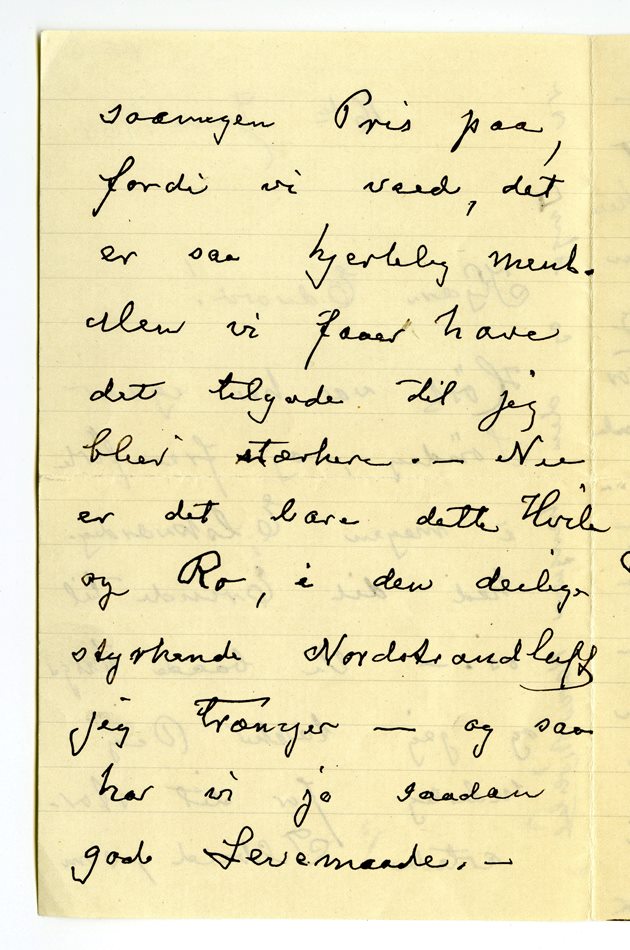 saamegen Pris paa,
fordi vi veed, det
er saa hjertelig ment.
Men vi faaer have
det tilgode til jeg
blier stærkere. — Nu
er det bare dette Hvile
og Ro, i den deilige
styrkende Nordstrandluft
jeg trænger — og saa
har vi jo saadan
god Levemaade. —